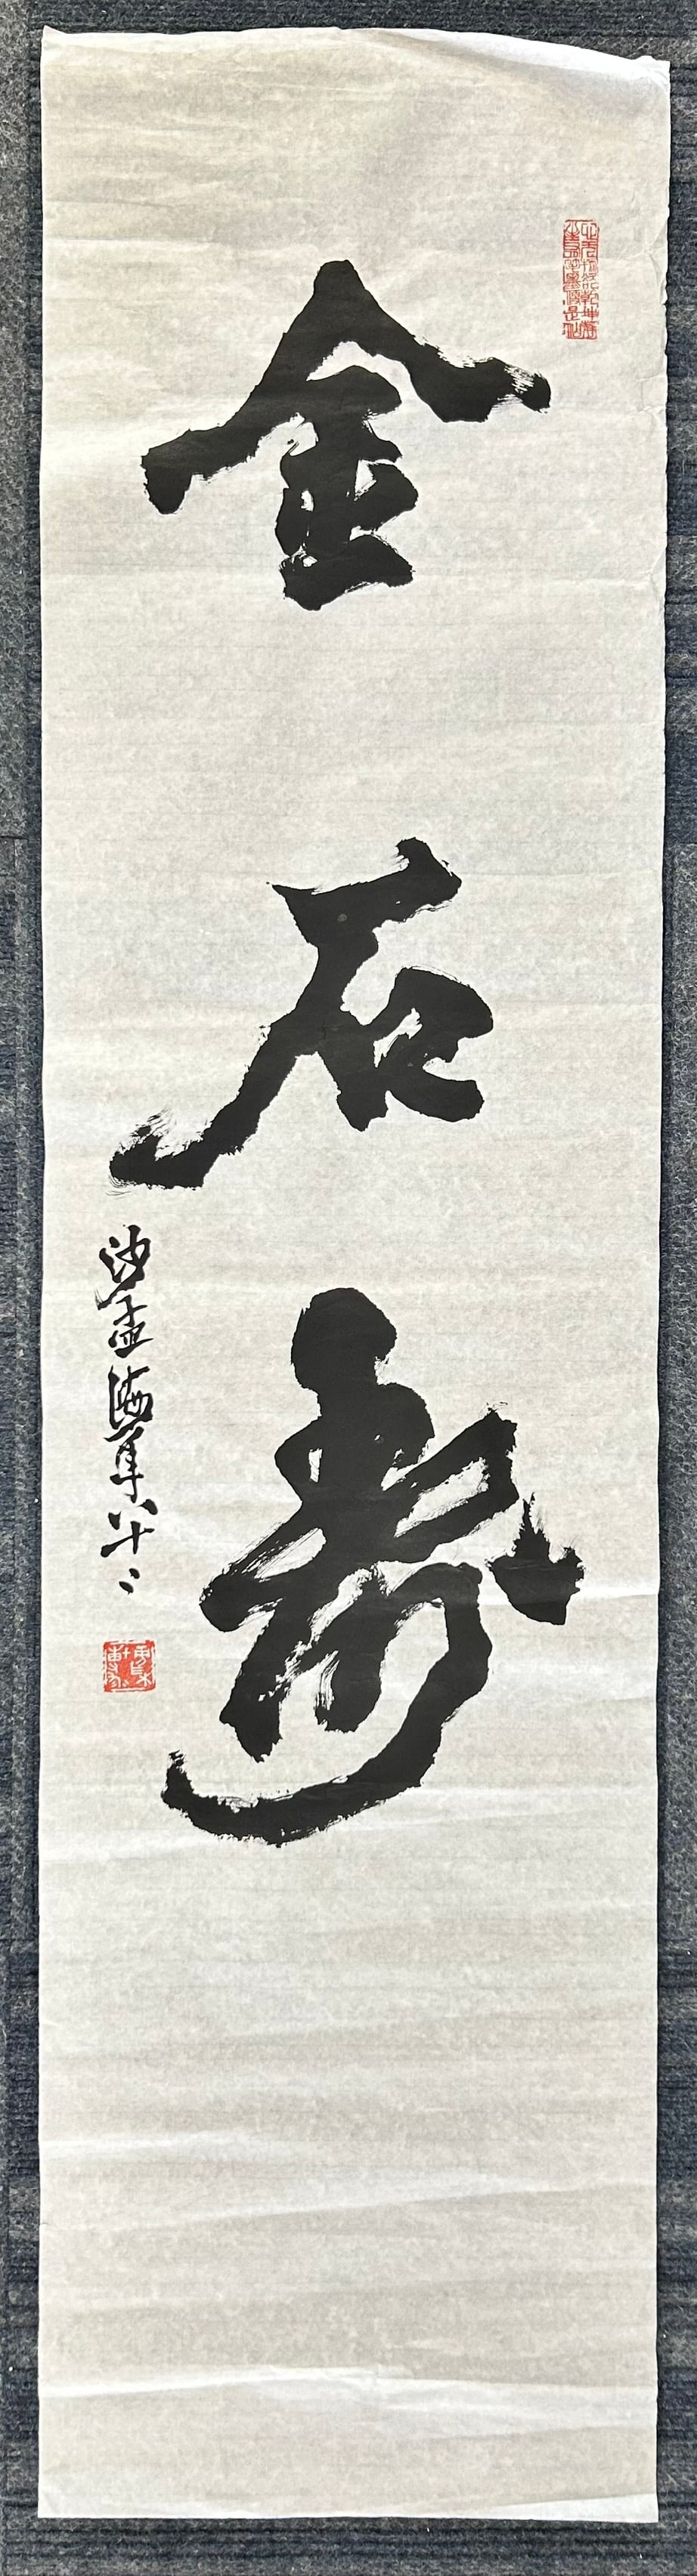 金石寿
沙孟海年八十二